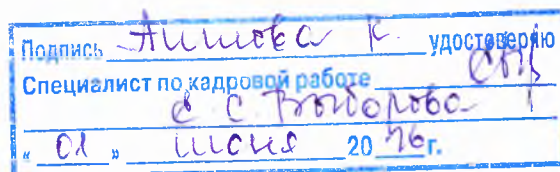 Подпись Аитова К. удостоверяю
Специалист по кадровой работе
С С Выборова
« 01 » июня 20 16 г.